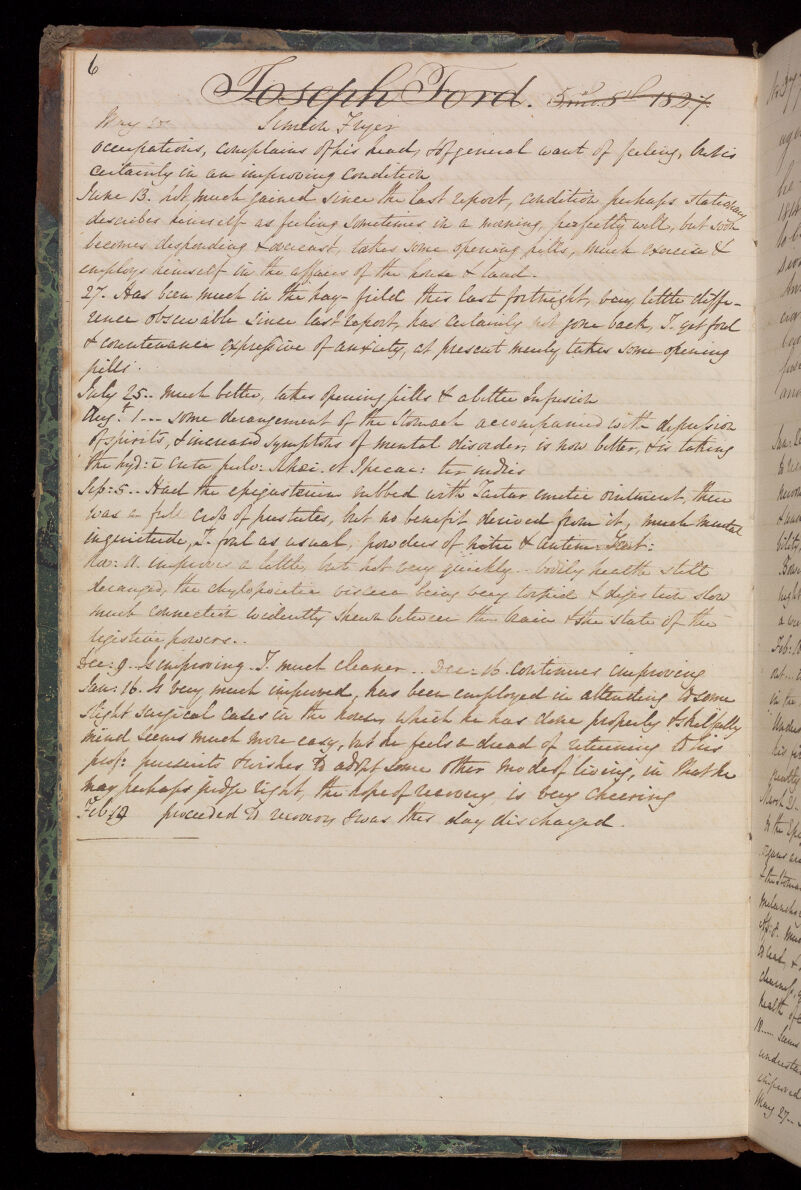 6
Joseph Ford. 5 mo. 5th 1827.
May Simeon Fryer
occupations, complains of his head, & of general want of feeling, but is
certainly in an improving condition
June 13. not much gained since the last report, condition perhaps stationary
describes himself as feeling sometimes in a morning, perfectly well, but soon
becomes desponding & overcast, takes some opening pills, much exercise &
employs himself in the affairs of the house & land.
27. Has been much in the hay-field this last fortnight, very little diffe-
rence observable since last report, has certainly not gone back, T. yet foul
& countenance expressive of anxiety, at present merely takes some opening
pills.
July 25.. much better, takes opening pills & a bitter Infusion
Augt. 1 --- some derangement of the stomach accompanied with depression
of spirits, & increased symptoms of mental disorder, is now better, & is taking
the hyd: c Creta pulv: Rhei. et Ipecac: ter indies
Sep: 5.. Had the epigastrium rubbed with Tartar emetic ointment, there
was a full crop of pustules, but no benefit derived from it, much mental
inquietude, T. foul as usual, powders of nitre & antim: Tart:
Nov: 11. improves a little, but not very quickly.. bodily health still
deranged, the chylopoietic viscera being very torpid & digestion slow
much connection evidently shewn between the brain & the state of the
digestive powers..
Dec: 9. Is improving. T. much cleaner.. Dec: 16. continues improving
Jan: 16. Is very much improved, has been employed in attending to some
slight surgical cases in the house, which he has done properly & skilfully
mind seems much more easy, but he feels a dread of returning to his
prof: pursuits & wishes to adopt some other mode of living, in that he
may perhaps judge right, the hope of recovery is very cheering
Feb 19 proceeded to recovery & was this day discharged.